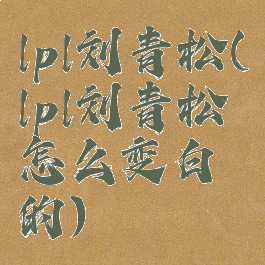 lpl刘青松(
lpl刘青松
怎么变白
的)